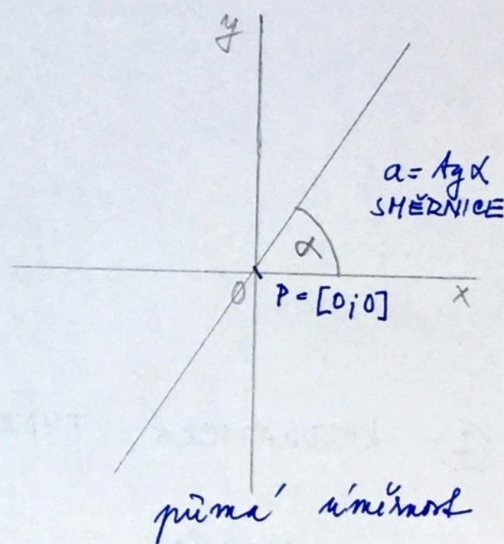 y
a = tg α
SMĚRNICE
α
0
P = [0;0]
x
přímá úměrnost